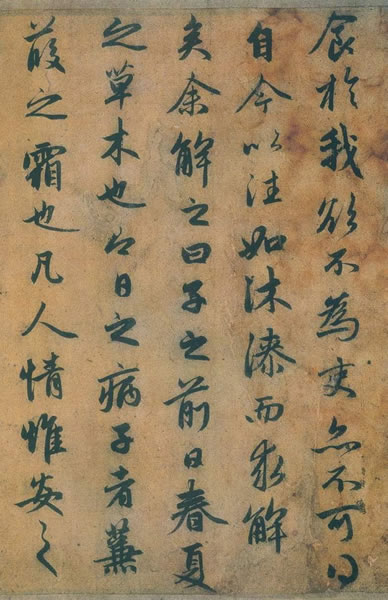 食於我欲不為吏亦不可得
自今以往如沐漆而求解
矣余解之曰子之前日春夏
之草木也今日之病子者蒹
葭之霜也凡人情惟安之